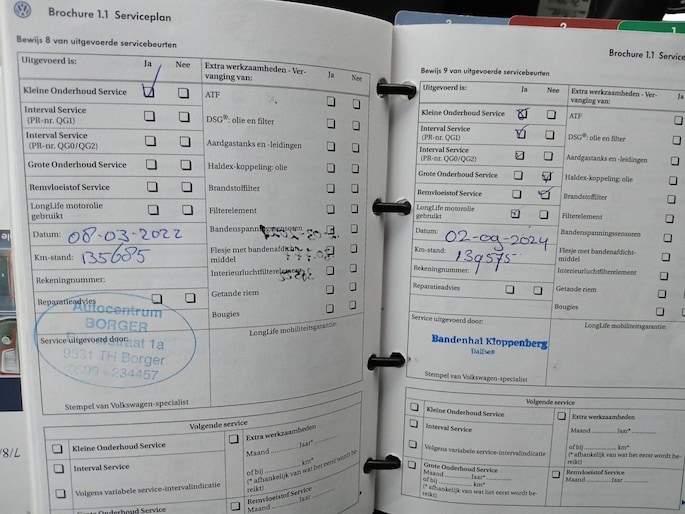 Brochure 1.1 Serviceplan
Bewijs 8 van uitgevoerde servicebeurten
Uitgevoerd is: Ja Nee
Kleine Onderhoud Service
Interval Service
(PR-nr. QG1)
Interval Service
(PR-nr. QG0/QG2)
Grote Onderhoud Service
Remvloeistof Service
LongLife motorolie
gebruikt
Datum: 08-03-2022
Km-stand: 135685
Rekeningnummer:
Reparatieadvies
Autocentrum
BORGER
1a
9531 TH Borger
234457
Service uitgevoerd door:
Stempel van Volkswagen-specialist
Extra werkzaamheden - Ver-
vanging van: Ja Nee
ATF
DSG®: olie en filter
Aardgastanks en -leidingen
Haldex-koppeling: olie
Brandstoffilter
Filterelement
Bandenspanningssensoren
Flesje met bandenafdicht-
middel
Interieurluchtfilterelement
Getande riem
Bougies
LongLife mobiliteitsgarantie:
Volgende service
Kleine Onderhoud Service
Interval Service
Volgens variabele service-intervalindicatie
Grote Onderhoud Service
Extra werkzaamheden
Maand ........ Jaar*........
of bij ............ km*
(* afhankelijk van wat het eerst wordt be-
reikt)
Remvloeistof Service
Maand ........ Jaar ........
3 2 1
Brochure 1.1 Service
Bewijs 9 van uitgevoerde servicebeurten
Uitgevoerd is: Ja Nee
Kleine Onderhoud Service
Interval Service
(PR-nr. QG1)
Interval Service
(PR-nr. QG0/QG2)
Grote Onderhoud Service
Remvloeistof Service
LongLife motorolie
gebruikt
Datum: 02-09-2024
Km-stand: 139575
Rekeningnummer:
Reparatieadvies
Service uitgevoerd door:
Bandenhal Kloppenberg
Dalfsen
Stempel van Volkswagen-specialist
Extra werkzaamheden - Ver-
vanging van: Ja
ATF
DSG®: olie en filter
Aardgastanks en -leidingen
Haldex-koppeling: olie
Brandstoffilter
Filterelement
Bandenspanningssensoren
Flesje met bandenafdicht-
middel
Interieurluchtfilterelement
Getande riem
Bougies
LongLife mobiliteitsgarantie:
Volgende service
Kleine Onderhoud Service
Interval Service
Volgens variabele service-intervalindicatie
Grote Onderhoud Service
Maand ........ Jaar*........
of bij ............ km*
(* afhankelijk van wat het eerst wordt be-
reikt)
Extra werkzaamheden
Maand ........ Jaar*........
of bij ............ km*
(* afhankelijk van wat het eerst wordt be-
reikt)
Remvloeistof Service
Maand ........ Jaar ........
7/8